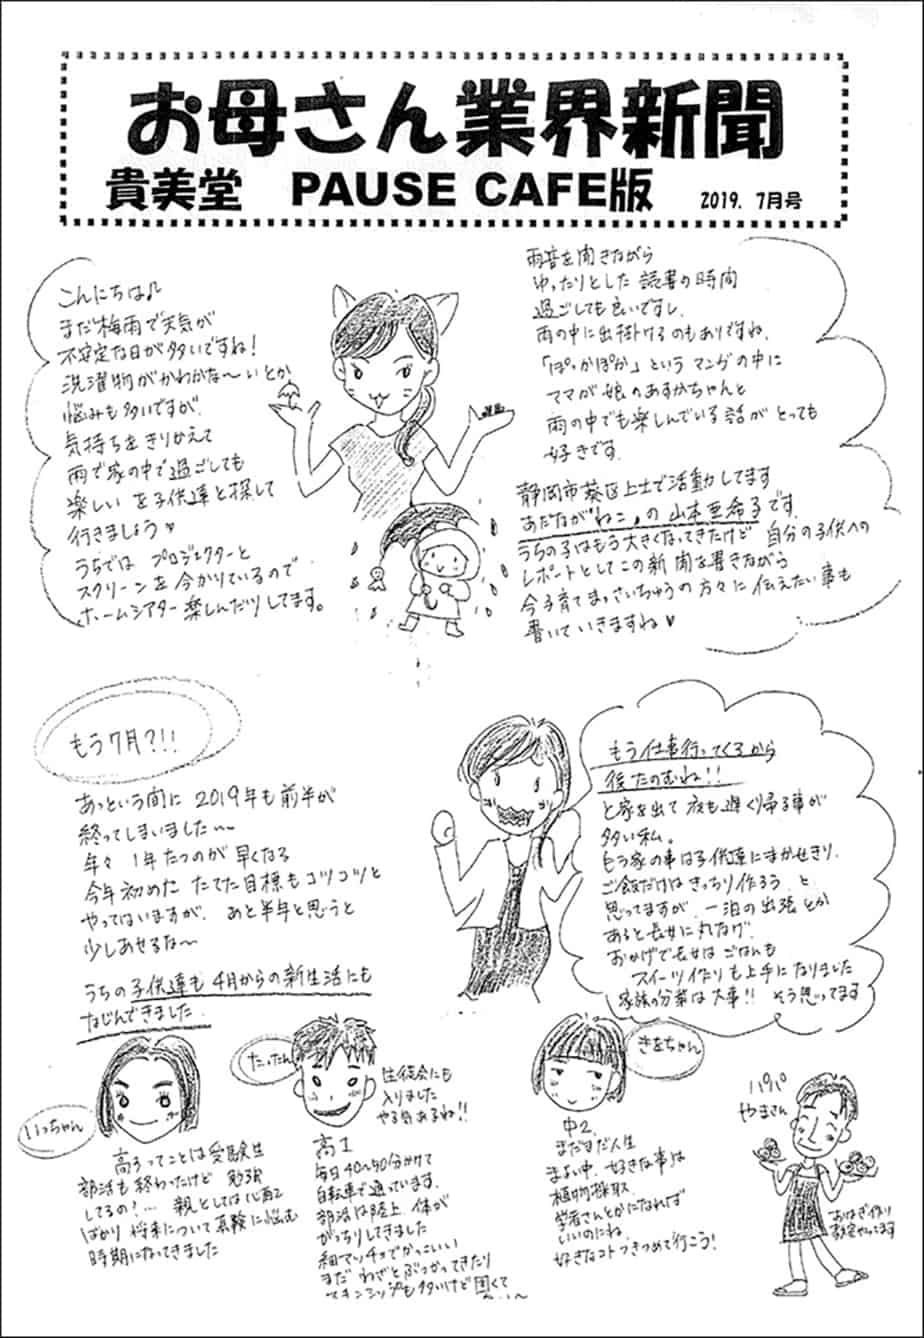 お母さん業界新聞
貴美堂 PAUSE CAFE版 2019. 7月号
こんにちは♪
まだ梅雨で天気が
不安定な日が多いですね!
洗濯物がかわかな〜いとか
悩みも多いですが
気持ちをきりかえて
雨で家の中で過ごしても
楽しい を子供達と探して
行きましょう♥
うちでは プロジェクターと
スクリーンを今かりているので
ホームシアター楽しんだりしてます。
雨音を聞きながら
ゆったりとした 読書の時間
過ごしても良いですし、
雨の中に出掛けるのもありですね、
「ぽかぽか」という マンガの中に
ママが娘のあすかちゃんと
雨の中でも楽しんでいる話が とっても
好きです。
静岡市葵区上土で活動してます
あだ名が"ねこ"の 山本亜希子です。
うちの子はもう大きくなってきたけど 自分の子供への
レポートとしてこの新聞を書きながら
今子育てまっさいちゅうの方々に伝えたい事も
書いていきますね♥
もう7月?!!
あっという間に 2019年も前半が
終ってしまいました〜
年々 1年たつのが 早くなる
今年初めた たてた目標もコツコツと
やってはいますが、あと半年と思うと
少しあせるな〜
うちの子供達も4月からの新生活にも
なじんできました
もう仕事行ってくるから
後たのむね!!
と家を出て 夜も遅く帰る事が
多い私。
もう家の事は子供達にまかせきり、
ご飯だけは きっちり作ろう と
思ってますが、一泊の出張とか
あると長女に丸なげ、
おかげで長女は ごはんも
スイーツ作りも上手になりました
家族の分業は大事!! そう思ってます
いっちゃん
高3ってことは受験生
部活も終わったけど 勉強
してるの!… 親としては心配
ばかり 将来について真験に悩む
時期になってきました
たったん
生徒会にも
入りました
やる気あるね!!
高1
毎日40〜50分かけて
自転車で通っています。
部活は陸上 体が
がっちりしてきました
細マッチョでかっこいい
まだ わざとぶつかってきたり
スキンシップも多いけど固くて
きをちゃん
中2、
まだまだ人生
まよい中、好きな事は
植物採取、
学者さんとかになれば
いいのにね、
好きなコトつきつめて行こう!
パパ
やまさん
おはぎ作り
教室やってます